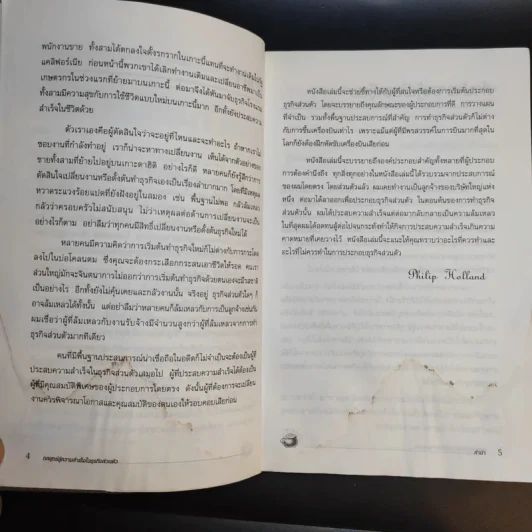 พนักงานขาย ทั้งสามได้ตกลงใจตั้งรกรากในเกาะนี้แทนที่จะทำงาน
แคลิฟอร์เนีย ก่อนหน้านี้พวกเขาได้เลิกทำงานเดิมและเปลี่ยนอาชีพมาเป็น
เกษตรกรในช่วงแรกที่ย้ายมาบนเกาะนี้ ต่อมาจึงได้หันมาจับธุรกิจโรงแรม
ทั้งสามมีความสุขกับการใช้ชีวิตแบบใหม่บนเกาะนี้มาก อีกทั้งยังประสบความ
สำเร็จในชีวิตด้วย
ตัวเราเองคือผู้ตัดสินใจว่าจะอยู่ที่ไหนและจะทำอะไร ถ้าหากเราไม่
ชอบงานที่กำลังทำอยู่ เราก็น่าจะหาทางเปลี่ยนงาน เห็นได้จากตัวอย่าง
ขายทั้งสามที่ย้ายไปอยู่บนเกาะตาฮิติ อย่างไรก็ดี หลายคนก็ยังรู้สึกว่าการ
ตัดสินใจเปลี่ยนงานหรือตั้งต้นทำธุรกิจเองเป็นเรื่องลำบากมาก โดยที่มีเหตุผล
หวาดระแวงร้อยแปดที่ยังฝังอยู่ในสมอง เช่น พื้นฐานไม่พอ กลัวล้มเหลว
กลัวว่าครอบครัวไม่สนับสนุน ไม่ว่าเหตุผลต่อต้านการเปลี่ยนงานจะเป็น
อย่างไรก็ตาม อย่าลืมว่าทุกคนมีสิทธิ์เปลี่ยนงานหรือตั้งต้นธุรกิจใหม่ได้
หลายคนมีความคิดว่าการเริ่มต้นทำธุรกิจก็ไม่ต่างกับการกระโดด
ลงไปในบ่อโคลนตม ซึ่งคุณจะต้องกระเสือกกระสนเอาชีวิตให้รอด คนเรา
ส่วนใหญ่มักจะจินตนาการไม่ออกว่าการเริ่มต้นทำธุรกิจด้วยตนเองจะมีรสชาติ
เป็นอย่างไร อีกทั้งยังไม่คุ้นเคยและกลัวงานนั้น จริงอยู่ ธุรกิจส่วนตัวใดๆ ก็
อาจล้มเหลวได้ทั้งนั้น แต่อย่าลืมว่าหลายคนก็ล้มเหลวกับการเป็นลูกจ้างเช่นกัน
ผมเชื่อว่าผู้ที่ล้มเหลวกับงานรับจ้างมีจำนวนสูงกว่าผู้ที่ล้มเหลวจากการทำ
ธุรกิจส่วนตัวมากทีเดียว
คนที่มีพื้นฐานประสบการณ์น่าเชื่อถือในอดีตก็ไม่จำเป็นจะต้องเป็นผู้ที่
ประสบความสำเร็จในธุรกิจส่วนตัวเสมอไป ผู้ที่ประสบความสำเร็จได้ต้องเป็น
ผู้ที่มีคุณสมบัติพิเศษของผู้ประกอบการโดยตรง ดังนั้นผู้ที่ต้องการจะเปลี่ยน
งานควรพิจารณาโอกาสและคุณสมบัติของตนเองให้รอบคอบเสียก่อน
4 กลยุทธ์สู่ความสำเร็จในธุรกิจส่วนตัว
หนังสือเล่มนี้จะช่วยชี้ทางให้กับผู้ที่สนใจหรือต้องการเริ่มต้นประกอบ
ธุรกิจส่วนตัว โดยจะบรรยายถึงคุณลักษณะของผู้ประกอบการที่ดี การวางแผน
ที่จำเป็น รวมทั้งพื้นฐานประสบการณ์ที่สำคัญ การทำธุรกิจส่วนตัวก็ไม่ต่าง
กับการขึ้นเครื่องบินเท่าไร เพราะแม้แต่ผู้ที่มีพรสวรรค์ในการบินมากที่สุดใน
โลกก็ยังต้องฝึกหัดขับเครื่องบินเสียก่อน
หนังสือเล่มนี้จะบรรยายถึงองค์ประกอบสำคัญทั้งหลายที่ผู้ประกอบ
การต้องคำนึงถึง ทุกสิ่งทุกอย่างในหนังสือเล่มนี้ได้รวบรวมจากประสบการณ์
ของผมโดยตรง โดยส่วนตัวแล้ว ผมเคยทำงานเป็นลูกจ้างของบริษัทใหญ่แห่ง
หนึ่ง ต่อมาได้ลาออกเพื่อประกอบธุรกิจส่วนตัว ในตอนต้นของการทำธุรกิจ
ส่วนตัวนั้น ผมได้ประสบความสำเร็จแต่ต่อมากลับกลายเป็นความล้มเหลว
ในที่สุดผมได้อดทนสู้ต่อไปจนกระทั่งทำให้กิจการประสบความสำเร็จเกินความ
คาดหมายที่เคยวางไว้ หนังสือเล่มนี้จะแนะให้คุณทราบว่าอะไรที่ควรทำและ
อะไรที่ไม่ควรทำในการประกอบธุรกิจส่วนตัว
Philip Holland
คำนำ 5